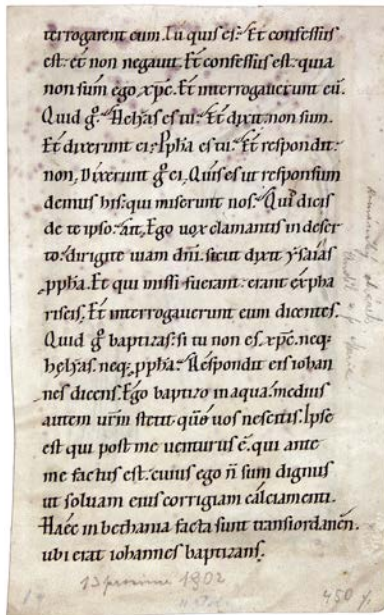 terrogarent eum. Tu quis es? Et confessus
est: et non negavit. Et confessus est: quia
non sum ego xp̄c. Et interrogaverunt eū.
Quid gͦ. Helyas es tu? Et dixit. non sum.
Et dixerunt ei: Ppha es tu? Et respondit:
non. Dixerunt gͦ ei. Quis es ut responsum
demus his: qui miserunt nos? Qui dicis
de te ipso? ait. Ego vox clamantis in deser
to: dirigite viam dn̄i. sicut dixit ysaias
ꝓpha. Et qui missi fuerant: erant ex pha
riseis. Et interrogaverunt eum dicentes.
Quid gͦ baptizas: si tu non es xp̄c. neq;
helyas. neq; ꝓpha? Respondit eis iohan
nes dicens. Ego baptizo in aqua. medius
autem vr̄m stetit. quē vos nescitis. Ipse
est qui post me venturus ē. qui ante
me factus est. cuius ego n̄ sum dignus
ut solvam eius corrigiam calciamenti.
Haec in bethania facta sunt transiordanēn.
ubi erat iohannes baptizans.
1902
450